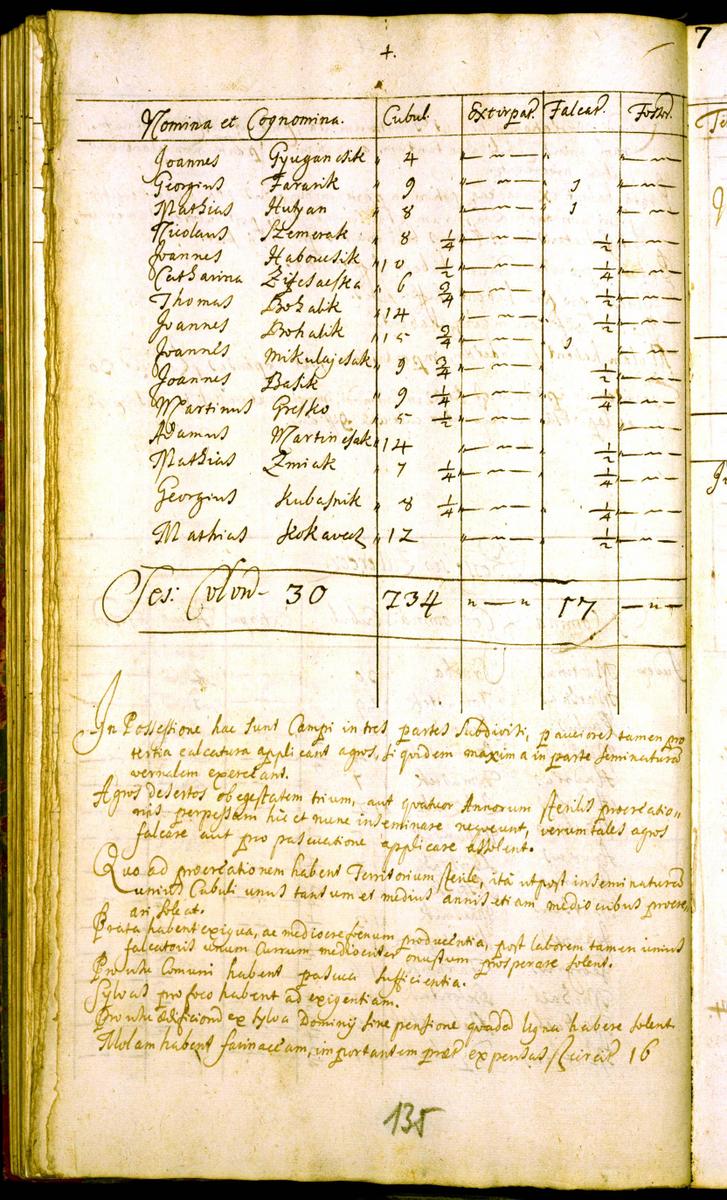 4.
7
Nomina et Cognomina. Cubul. Extirpat. Falcat. Fossor.
Joannes Gyugancsik " 4 "—"— " "—"
Georgius Fararik " 9 "—"— 1 "—"
Mathias Hulyan " 8 "—"— 1 "—"
Nicolaus Szemerak " 8 1/4 "—"— 1/2 "—"
Joannes Haboucsik " 10 1/2 "—"— 1/4 "—"
Catharina " 6 2/4 "—"— 1/2 "—"
Thomas Bohalik " 14 "—"— 1/2 "—"
Joannes Bohalik " 15 2/4 "—"— 1 "—"
Joannes Mikulajcsak " 9 3/4 "—"— 1/2 "—"
Joannes Basik " 9 1/4 "—"— 1/4 "—"
Martinus Gresko " 5 1/2 "—"— " "—"
Adamus Martincsak " 14 "—"— 1/2 "—"
Mathias Zmiak " 7 1/4 "—"— 1/4 "—"
Georgius Kubasnik " 8 1/4 "—"— 1/4 "—"
Mathias Kokavecz " 12 "—"— 1/2 "—"
Ses: Colon 30 234 "—" 17 —"—
In Possessione hac sunt Campi in tres partes subdivisi, pauciores tamen pro
tertia calcatura applicant agros, siquidem maxima in parte seminaturã
vernalem exerceant.
Agros desertos ob egestatem trium, aut quatuor Annorum sterilis procreatio=
nis perpessam hic et nunc inseminare nequeunt, verum tales agros
falcare aut pro pascuatione applicare assolent.
Quo ad procreationem habent Territorium sterile, ità ut post inseminaturã
unius Cubuli unus tantum et medius annis etiam mediocribus procre=
ari soleat.
Prata habent exigua, ac mediocre foenum producentia, post laborem tamen unius
falcatoris unum Currum mediocriter onustum prosperare solent.
Pro usu Comuni habent pascua sufficientia.
Sylvas pro foco habent ad exigentiam.
Pro usu ædificiond ex sylva Dominij sine pensione quadã ligna habere solent
Molam habent farinaceam, importantem præt expensas 16
135